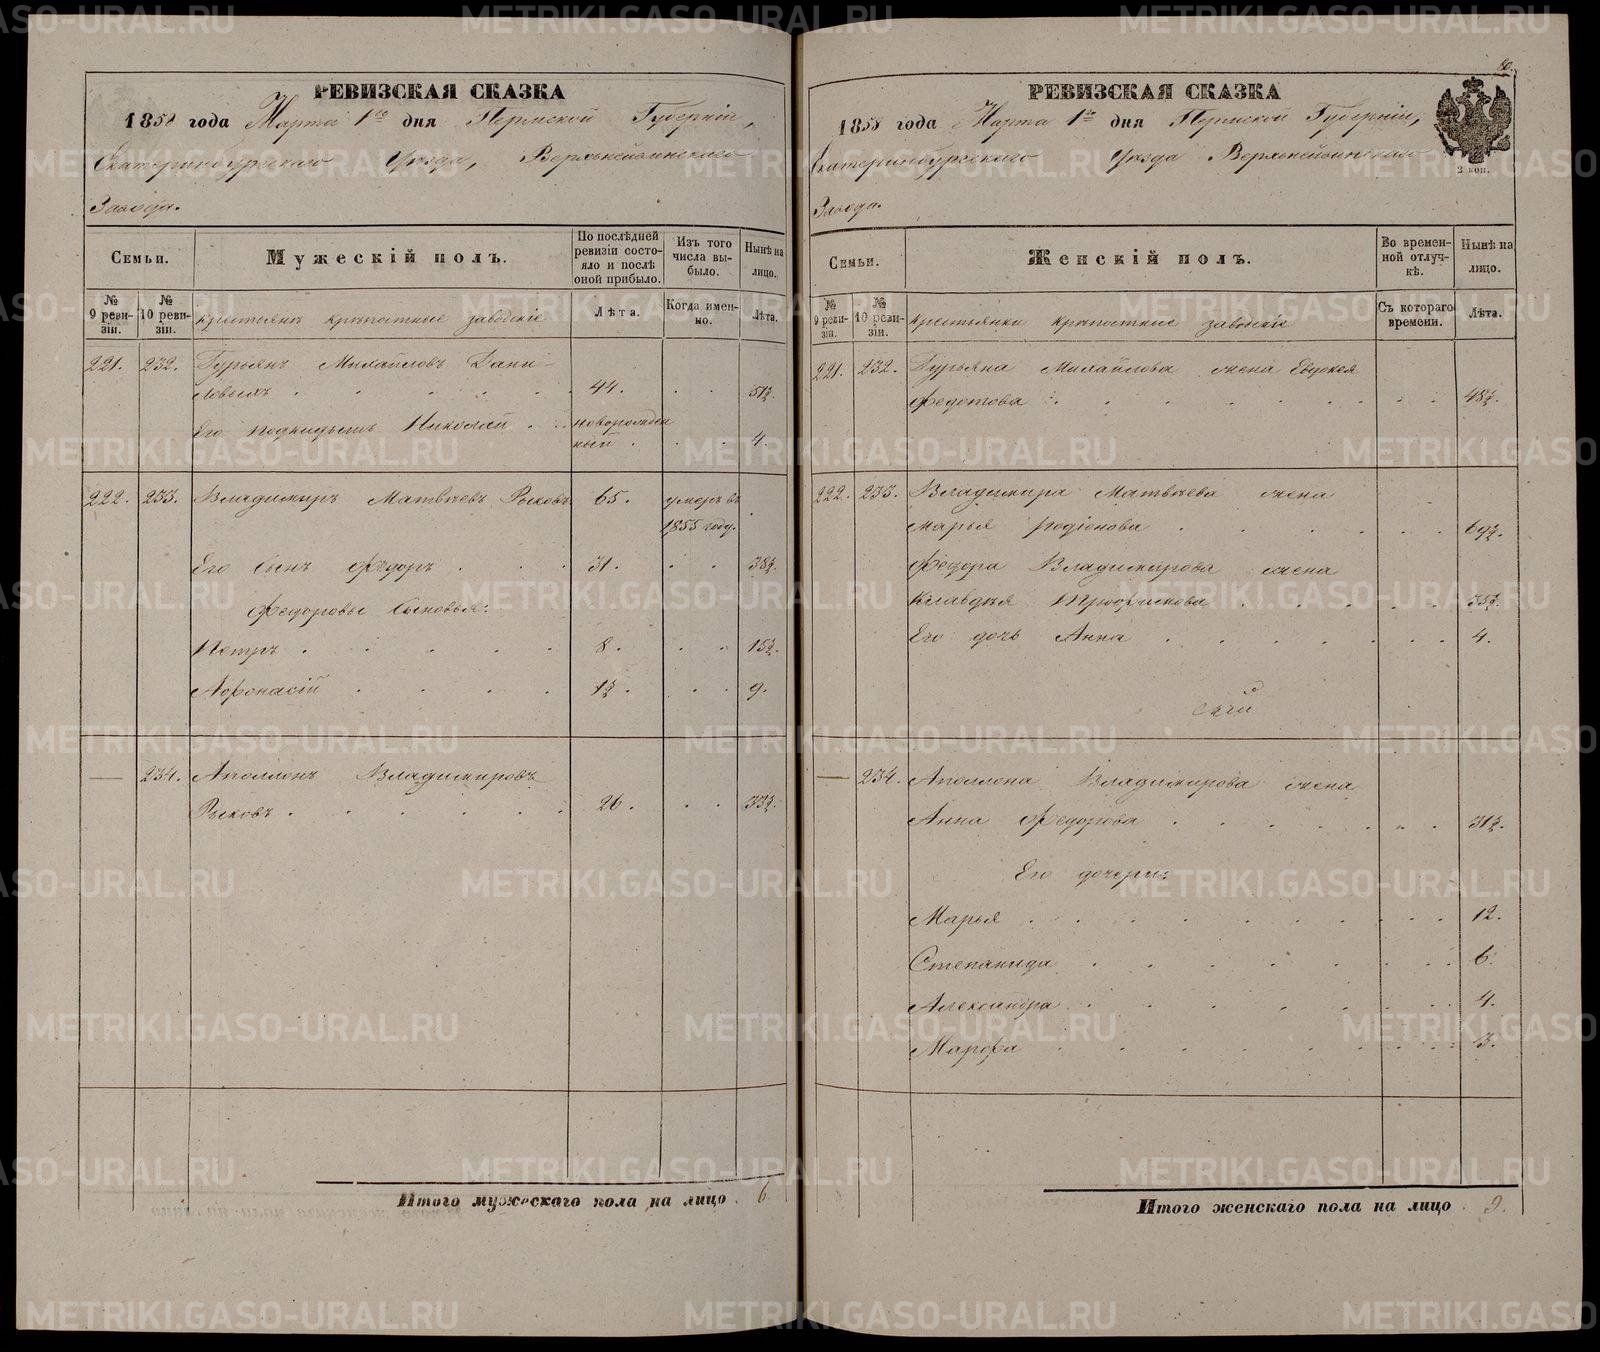 80.
РЕВИЗСКАЯ СКАЗКА
1858 года Марта 1го дня Пермской Губерніи,
Екатеринбургскаго Уезда, Верхнейвинскаго
Завода.
Семьи.
Мужескій полъ.
По послѣдней ревизіи состояло и послѣ оной прибыло.
Изъ того числа выбыло.
Нынѣ на лицо.
№ 9 ревизіи.
№ 10 ревизіи.
крестьянъ крѣпостные заводскіе
Лѣта.
Когда именно.
Лѣта.
221. 232. Гурьянъ Михайловъ Дани-
ловыхъ 44. 51½.
Его подкидышъ Николай новорожден
ный 4.
222. 233. Владимиръ Матвѣевъ Рыковъ 65. умеръ въ
1855 году.
Его сынъ Федоръ 31. 38½.
Федоровы Сыновья:
Петръ 8. 15½.
Афонасій 1½. 9.
— 234. Аполлонъ Владимировъ
Рыковъ 26. 33½.
Итого мужескаго пола на лицо 6
РЕВИЗСКАЯ СКАЗКА
1858 года Марта 1го дня Пермской Губерніи,
Екатеринбургскаго Уезда Верхнейвинскаго
Завода.
2 коп.
Семьи.
Женскій полъ.
Во временной отлучкѣ.
Нынѣ на лицо.
№ 9 ревизіи.
№ 10 ревизіи.
крестьянки крѣпостные заводскіе
Съ котораго времени.
Лѣта.
221. 232. Гурьяна Михайлова жена Евдокея
Федотова 48½.
222. 233. Владимира Матвѣева жена
Марья Родіонова 69½.
Федора Владимирова жена
Клавдѣя Трофимова 35½.
Его дочь Анна 4.
— 234. Аполлона Владимирова жена
Анна Федорова 31½.
Его дочери:
Марья 12.
Степанида 6.
Александра 4.
Марфа 3.
Итого женскаго пола на лицо 9.
METRIKI.GASO-URAL.RU